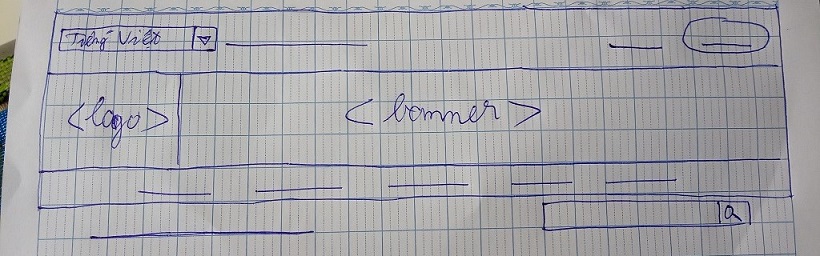 Tiếng Việt
<logo> <banner>